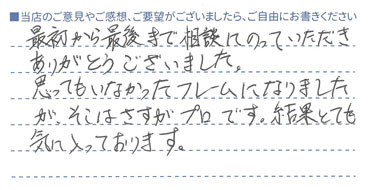 ■当店のご意見やご感想、ご要望がございましたら、ご自由にお書きください
最初から最後まで相談にのっていただき
ありがとうございました。
思ってもいなかったフレームになりました
が、そこはさすがプロです。結果とても
気に入っております。